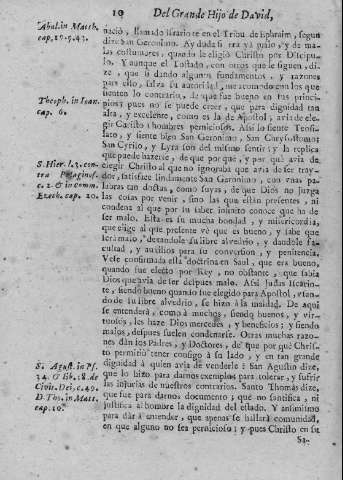 10 Del Grande Hijo de David,
Abul. in Matth.
cap. 10. q. 43.
Theoph. in Ioan.
cap. 6.
S. Hier. l. 3. con-
tra Pelagianos.
c. 2. & in comm.
Ezech. cap. 20.
S. Agust. in Ps.
34. & lib. 18. de
Civit. Dei, c. 49.
D. Tho. in Matt.
cap. 10.
nació, llamado Iscariote en el Tribu de Ephraim, segun
dize San Geronimo. Ay duda si era ya malo, y de ma-
las costumbres, quando le eligiò Christo por Discipu-
lo. Y aunque el Tostado, con otros que le siguen, di-
ze, que si dando algunos fundamentos, y razones
para ello, salva su autoridad, me acomodo con los que
sienten lo contrario, de que fue bueno en sus princi-
pios; pues no se puede creer, que para dignidad tan
alta, y excelente, como es la de Apostol, avia de ele-
gir Christo à hombres perniciosos. Assi lo siente Teofi-
lato, y siente bien San Geronimo, San Chrysostomo;
San Cyrilo, y Lyra son del mismo sentir; y la replica
que puede hazerse, de que por què, y por què avia de
elegir Christo al que no ignoraba que avia de ser tray-
dor, satisface lindamente San Geronimo, con unas pa-
labras tan doctas, como suyas, de que Dios no juzga
las cosas por venir, sino las que estàn presentes, ni
condena al que por su saber infinito conoce que ha de
ser malo. Esta es su mucha bondad, y misericordia,
que elige al que presente vè que es bueno, y sabe que
serà malo, dexandole su libre alvedrio, y dandole fa-
cultad, y auxilios para su conversion, y penitencia.
Vese confirmada esta doctrina en Saul, que era bueno,
quando fue electo por Rey, no obstante, que sabia
Dios que avia de ser despues malo. Assi Judas Iscario-
te, siendo bueno quando fue elegido para Apostol, usan-
do de su libre alvedrio, se hizo à la maldad. De aqui
se entenderà, como à muchos, siendo buenos, y vir-
tuosos, les haze Dios mercedes, y beneficios; y siendo
malos, despues suelen condenarse. Otras muchas razo-
nes dàn los Padres, y Doctores, de que por què Chris-
to permitiò tener consigo à su lado, y en tan grande
dignidad à quien avia de venderle: San Agustin dize,
que lo hizo para darnos exemplos para tolerar, y sufrir
las injurias de nuestros contrarios. Santo Thomàs dize,
que fue para darnos documento; que no santifica, ni
justifica al hombre la dignidad del estado. Y assimismo
para dàr à entender, que apenas se hallarà comunidad,
en que alguno no sea pernicioso; y pues Christo en su
Sa-